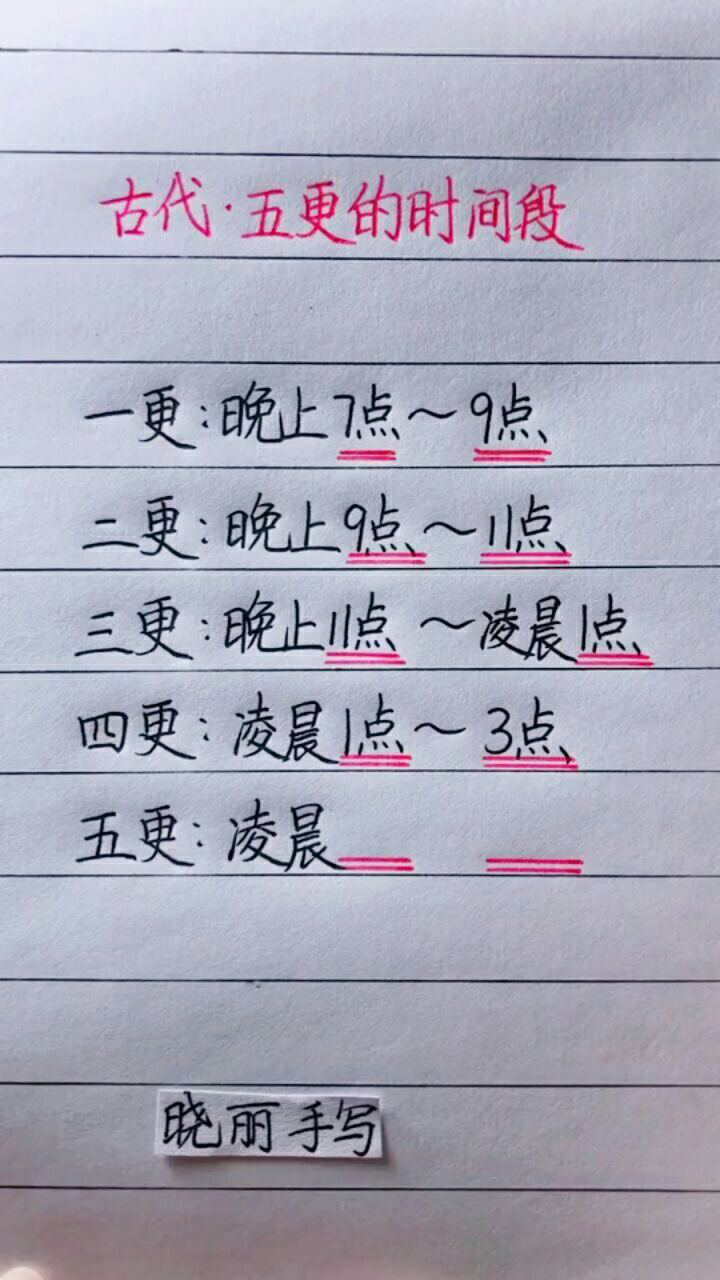 古代·五更的时间段
一更:晚上7点~9点
二更:晚上9点~11点
三更:晚上11点~凌晨1点
四更:凌晨1点~3点
五更:凌晨
晓丽手写